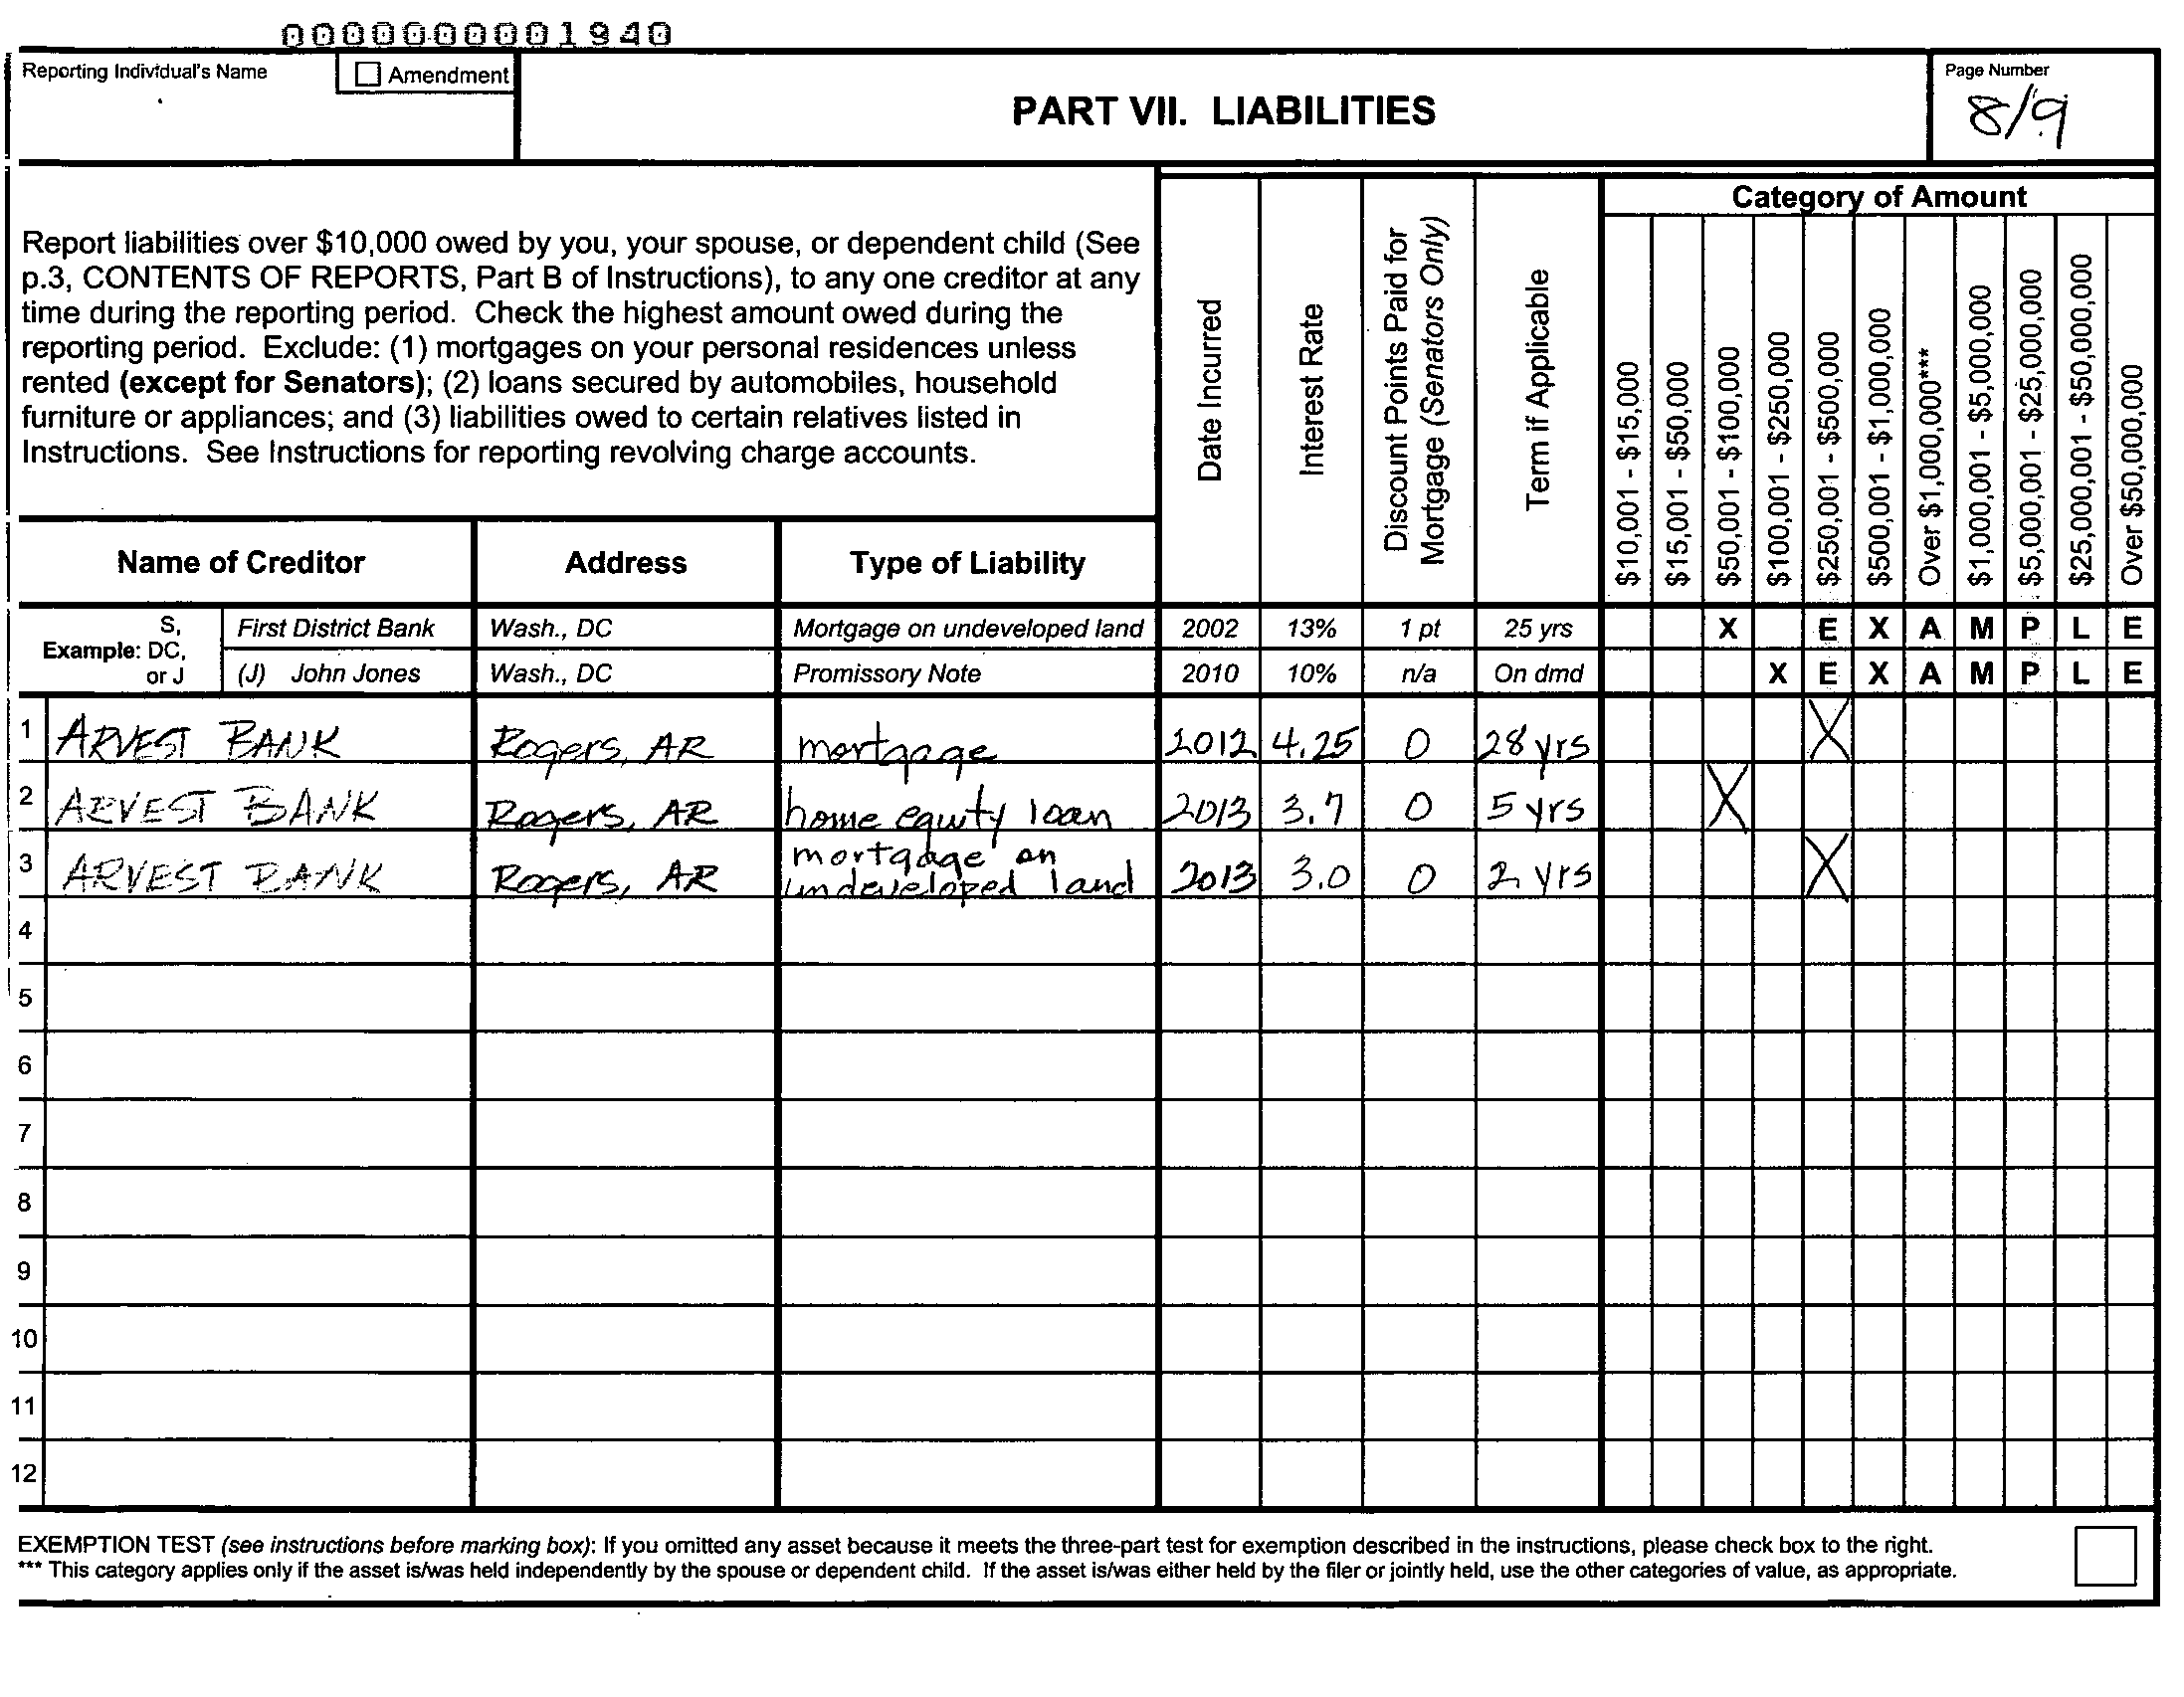 0000000001940
Reporting Individual's Name
Amendment
PART VII. LIABILITIES
Page Number
8/9
Report liabilities over $10,000 owed by you, your spouse, or dependent child (See
p.3, CONTENTS OF REPORTS, Part B of Instructions), to any one creditor at any
time during the reporting period. Check the highest amount owed during the
reporting period. Exclude: (1) mortgages on your personal residences unless
rented (except for Senators); (2) loans secured by automobiles, household
furniture or appliances; and (3) liabilities owed to certain relatives listed in
Instructions. See Instructions for reporting revolving charge accounts.
Date Incurred
Interest Rate
Discount Points Paid for
Mortgage (Senators Only)
Term if Applicable
Category of Amount
$10,001 - $15,000
$15,001 - $50,000
$50,001 - $100,000
$100,001 - $250,000
$250,001 - $500,000
$500,001 - $1,000,000
Over $1,000,000***
$1,000,001 - $5,000,000
$5,000,001 - $25,000,000
$25,000,001 - $50,000,000
Over $50,000,000
Name of Creditor Address Type of Liability
Example: S, DC, or J
First District Bank Wash., DC Mortgage on undeveloped land 2002 13% 1 pt 25 yrs X E X A M P L E
(J) John Jones Wash., DC Promissory Note 2010 10% n/a On dmd X E X A M P L E
1 ARVEST BANK Rogers, AR mortgage 2012 4.25 0 28 yrs X
2 ARVEST BANK Rogers, AR home equity loan 2013 3.7 0 5 yrs X
3 ARVEST BANK Rogers, AR mortgage on undeveloped land 2013 3.0 0 2 yrs X
4
5
6
7
8
9
10
11
12
EXEMPTION TEST (see instructions before marking box): If you omitted any asset because it meets the three-part test for exemption described in the instructions, please check box to the right.
*** This category applies only if the asset is/was held independently by the spouse or dependent child. If the asset is/was either held by the filer or jointly held, use the other categories of value, as appropriate.